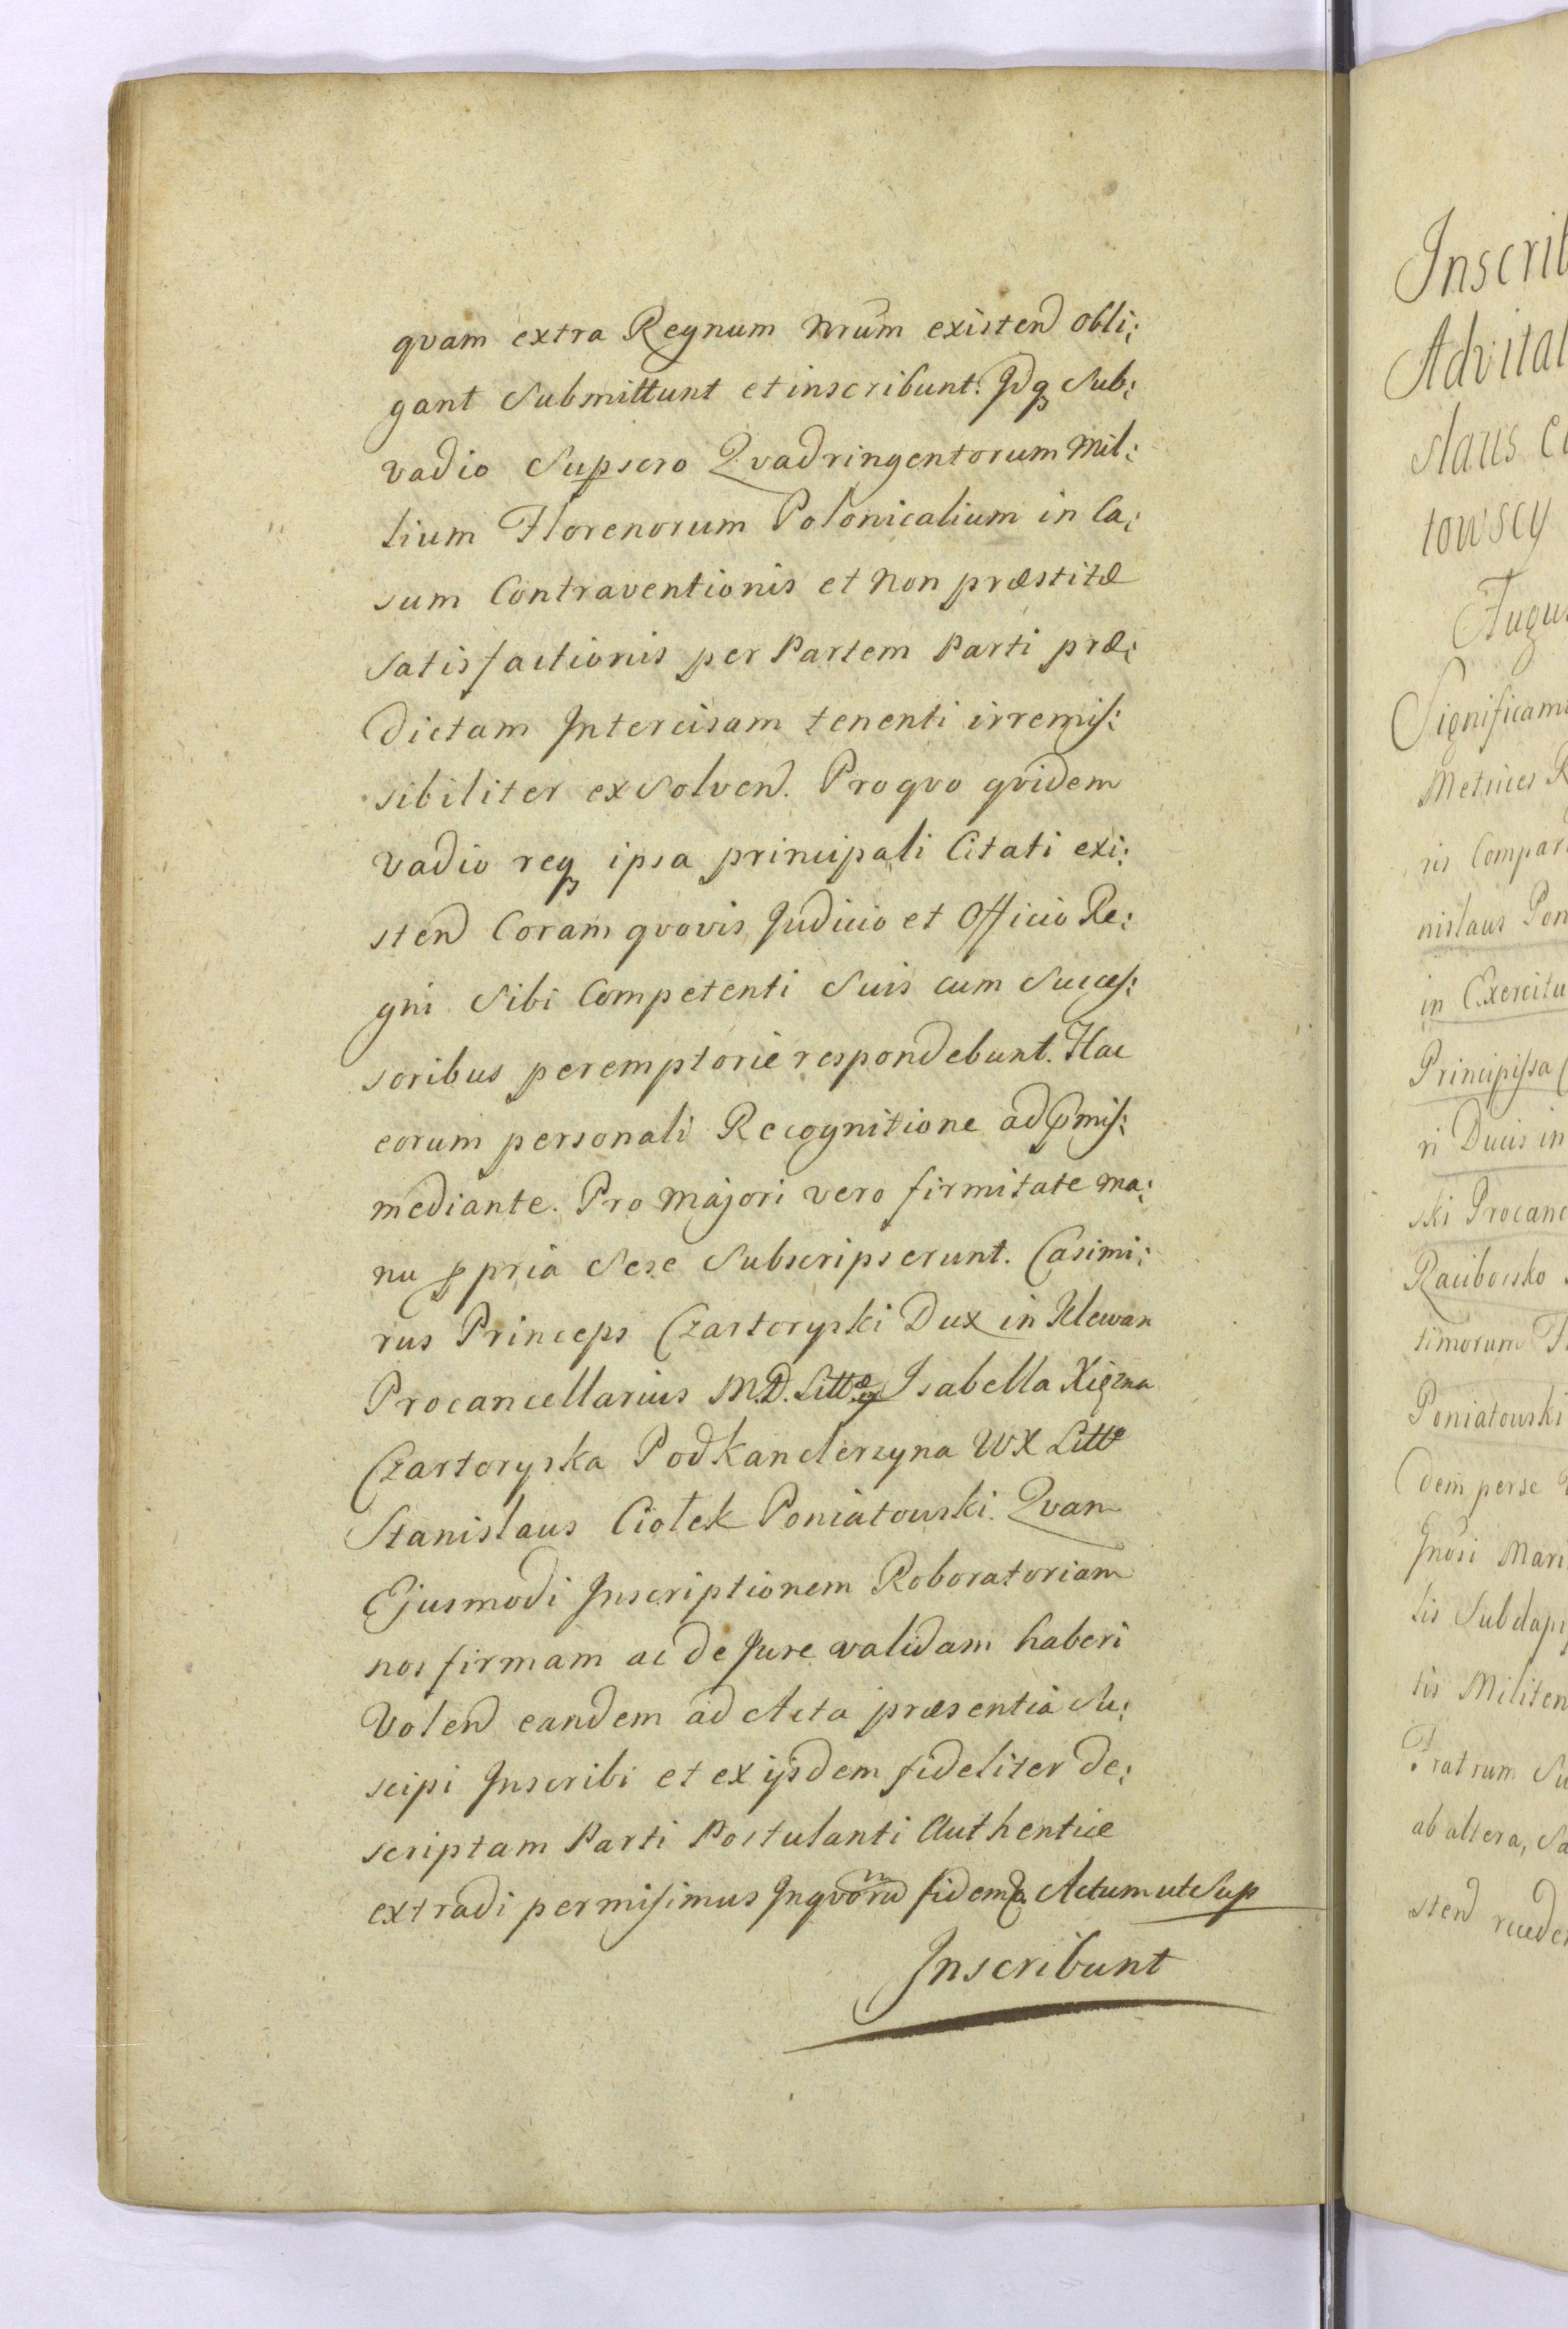 quam extra Regnum Nrum existend obli:
gant Submittunt et inscribunt. Idq Sub:
vadio Supsero Quadringentorum Mil:
lium Florenorum Polonicalium in Ca:
sum Contraventionis et Non præstitæ
Satisfactionis per Partem Parti præ:
dictam Intercisam tenenti irremis:
sibiliter exsolvend. Pro quo quidem
vadio req ipsa principali Citati exi:
stend Coram quovis Judicio et Officio Re:
gni Sibi Competenti Suis cum Succes:
soribus peremptorie respondebunt. Hac
eorum personali Recognitione ad pmis:
mediante. Pro Majori vero firmitate ma:
nu ppria Sese Subscripserunt. Casimi:
rus Princeps Czartoryski Dux in Klewan
Procancellarius M.D. Litt. Isabella Xiężna
Czartoryska Podkanclerzyna WX Litte
Stanislaus Ciołek Poniatowski. Quam
Ejusmodi Inscriptionem Roboratoriam
nos firmam ac de Jure validam haberi
Volend eandem ad Acta præsentia Su:
scipi Inscribi et ex ijsdem fideliter de:
scriptam Parti Postulanti Authentice
extradi permisimus In quoru fidem Actum ut Sup
Inscribunt
Inscrib
Advital
slaus
towscy
Augus
Significam
Metrices
ris Compar
nislaus Pon
in Exercitu
Principissa
ri Ducis in
ski Procanc
Raciborsko
timorum
Poniatowski
dem perse
Mari
lis Subdapi
tis Militen
Fratrum Su
ab altera, Sa
stend